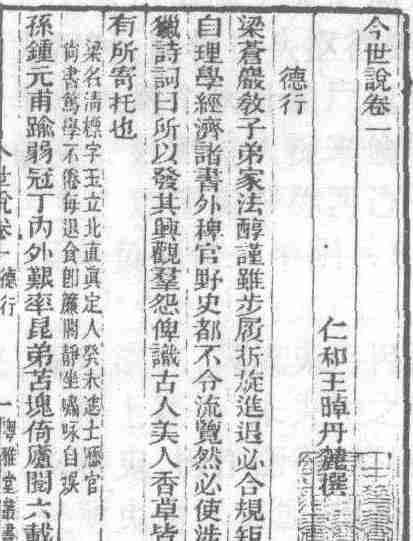 今世說卷一
仁和王晫丹麓撰
德行
梁蒼巖教子弟家法醇謹雖步履折旋進退必合規矩
自理學經濟諸書外稗官野史都不令流覽然必使涉
獵詩詞曰所以發其興觀羣怨俾識古人美人香草皆
有所寄托也
梁名清標字玉立北直真定人癸未進士歷官
尚書篤學不倦每退食卽簾閣靜坐嘯咏自娛
孫鍾元甫踰弱冠丁內外艱率昆弟苫塊倚廬閱六載
今世說卷一德行
一
粵雅堂叢書